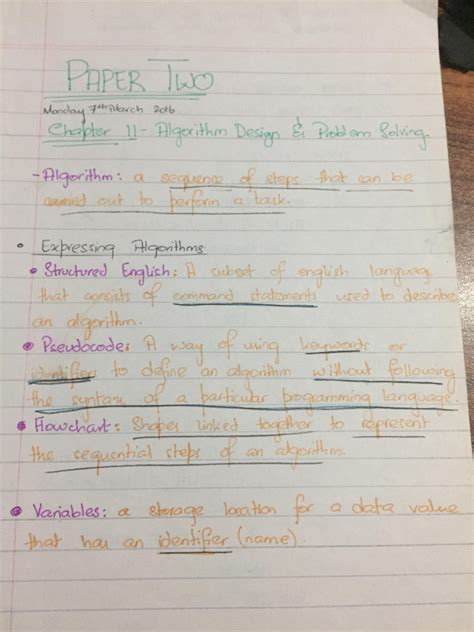 PAPER TWO
Monday 7th March 2016
Chapter 11 - Algorithm Design & Problem Solving.
- Algorithm: a sequence of steps that can be
carried out to perform a task.
• Expressing Algorithms
• Structured English: A subset of english language
that consists of command statements used to describe
an algorithm.
• Pseudocode: A way of using keywords or
identifiers to define an algorithm without following
the syntax of a particular programming language.
• Flowchart: Shapes linked together to represent
the sequential steps of an algorithm.
• Variables: a storage location for a data value
that has an identifier (name).